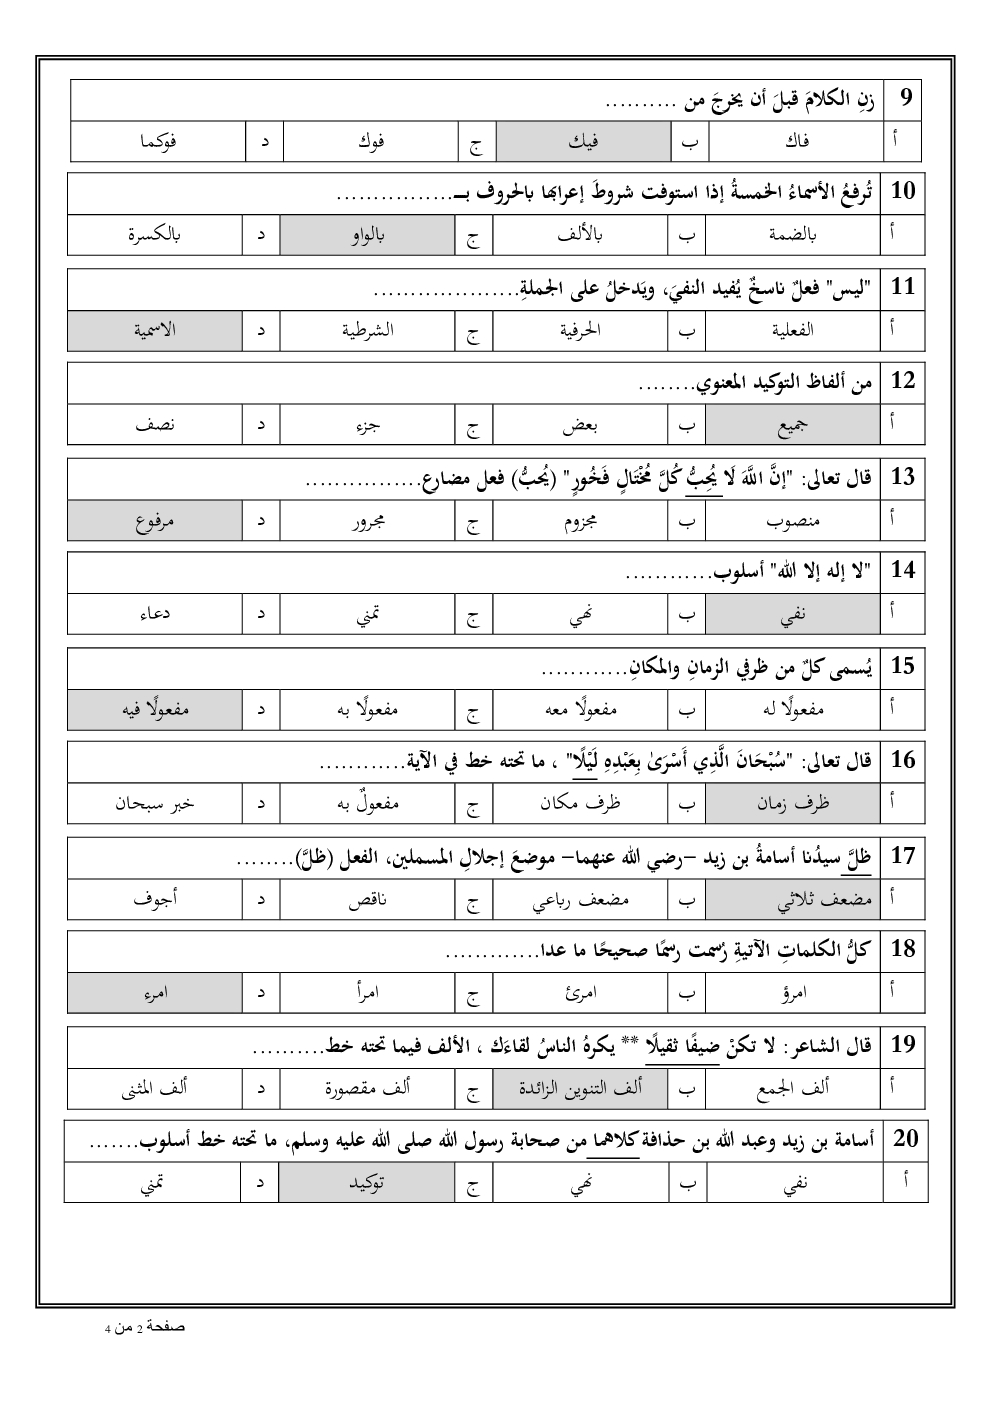 9 زنِ الكلامَ قبلَ أن يخرجَ من ..........
أ فاك ب فيك ج فوك د فوكما
10 تُرفعُ الأسماءُ الخمسةُ إذا استوفت شروطَ إعرابها بالحروف بـــ................
أ بالضمة ب بالألف ج بالواو د بالكسرة
11 "ليس" فعلٌ ناسخٌ يُفيد النفيَ، ويَدخلُ على الجملةِ....................
أ الفعلية ب الحرفية ج الشرطية د الاسمية
12 من ألفاظ التوكيد المعنوي........
أ جميع ب بعض ج جزء د نصف
13 قال تعالى: "إنَّ اللَّهَ لَا يُحِبُّ كُلَّ مُخْتَالٍ فَخُورٍ" (يُحبُّ) فعل مضارع................
أ منصوب ب مجزوم ج مجرور د مرفوع
14 "لا إله إلا الله" أسلوب............
أ نفي ب نهي ج تمني د دعاء
15 يُسمى كلٌ من ظرفي الزمانِ والمكانِ............
أ مفعولًا له ب مفعولًا معه ج مفعولًا به د مفعولًا فيه
16 قال تعالى: "سُبْحَانَ الَّذِي أَسْرَىٰ بِعَبْدِهِ لَيْلًا" ، ما تحته خط في الآية............
أ ظرف زمان ب ظرف مكان ج مفعولٌ به د خبر سبحان
17 ظلَّ سيدُنا أسامةُ بن زيد –رضي الله عنهما– موضعَ إجلالِ المسملين، الفعل (ظلَّ)........
أ مضعف ثلاثي ب مضعف رباعي ج ناقص د أجوف
18 كلُّ الكلماتِ الآتيةِ رُسمت رسمًا صحيحًا ما عدا.............
أ امرؤ ب امرئ ج امرأ د امرء
19 قال الشاعر: لا تكنْ ضيفًا ثقيلًا ** يكرهُ الناسُ لقاءَك ، الألف فيما تحته خط..........
أ ألف الجمع ب ألف التنوين الزائدة ج ألف مقصورة د ألف المثنى
20 أسامة بن زيد وعبد الله بن حذافة كلاهما من صحابة رسول الله صلى الله عليه وسلم، ما تحته خط أسلوب.......
أ نفي ب نهي ج توكيد د تمني
صفحة 2 من 4